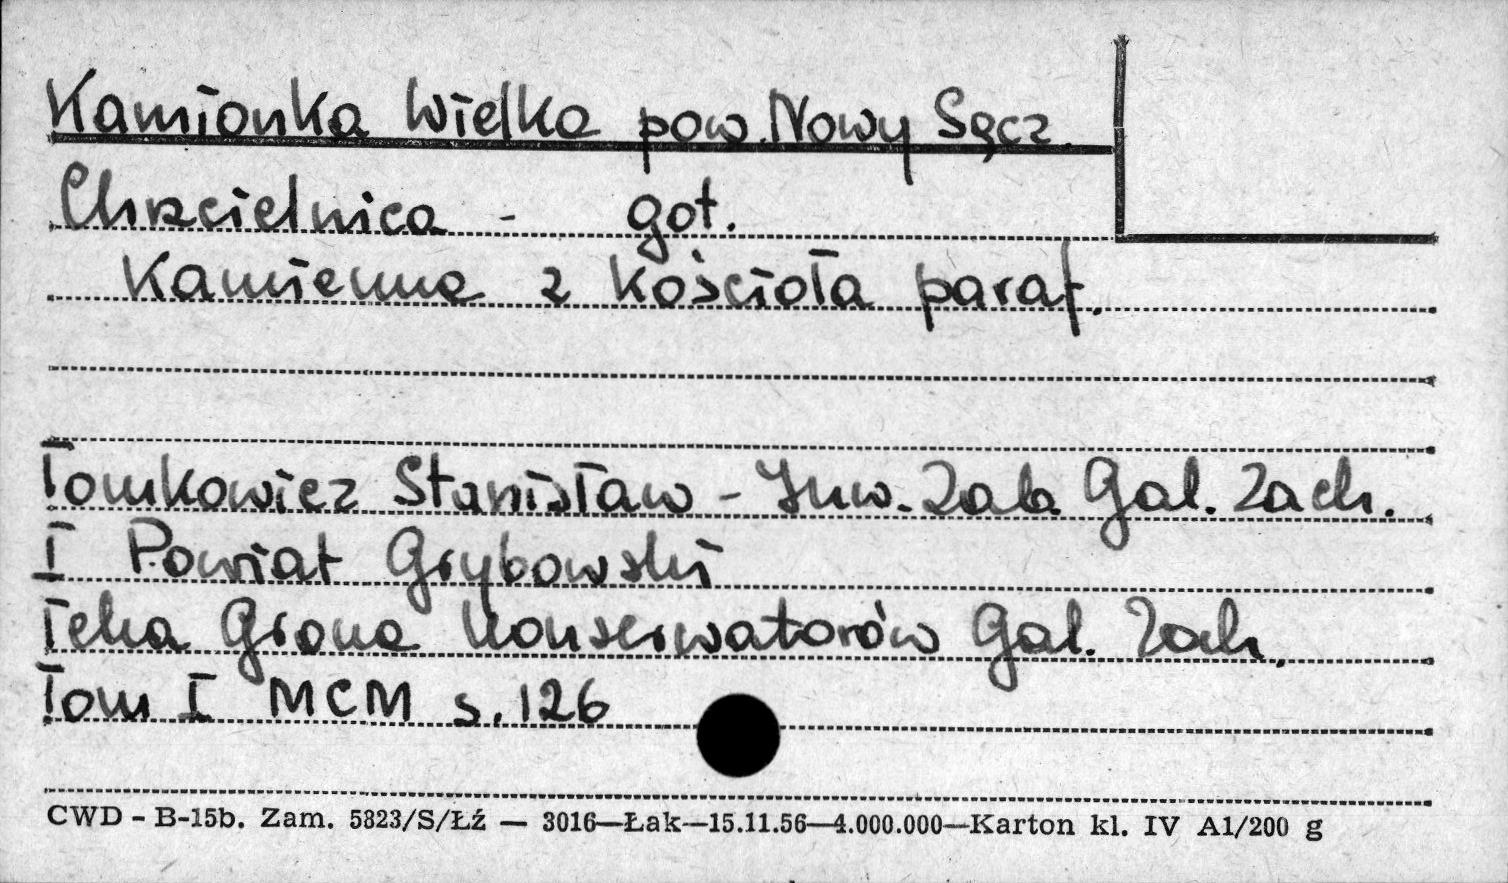 Kamionka Wielka pow. Nowy Sącz.
Chrzcielnica - got.
Kamienna z Kościoła paraf.
Tomkowicz Stanisław - Inw. Zab. Gal. Zach.
I Powiat Grybowski
Teka Grona Konserwatorów Gal. Zach.
Tom I MCM s. 126
CWD - B-15b. Zam. 5823/S/Łź — 3016—Łak—15.11.56—4.000.000—Karton kl. IV A1/200 g